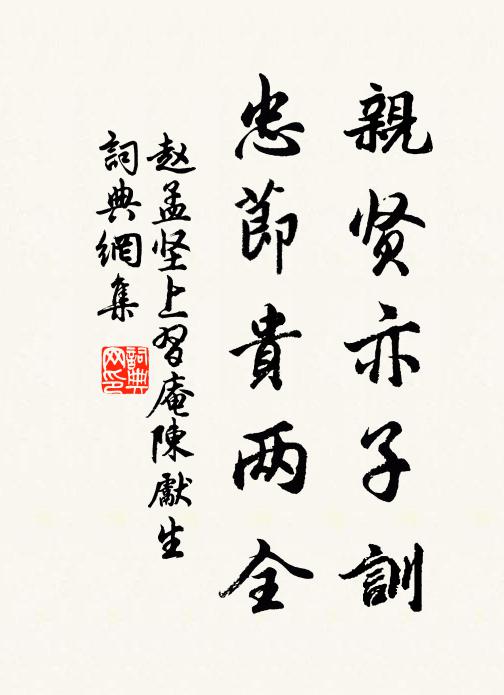 親贤亦子訓
忠節貴两全
赵孟坚上習庵陳獻生
詞典網集
詞典网印